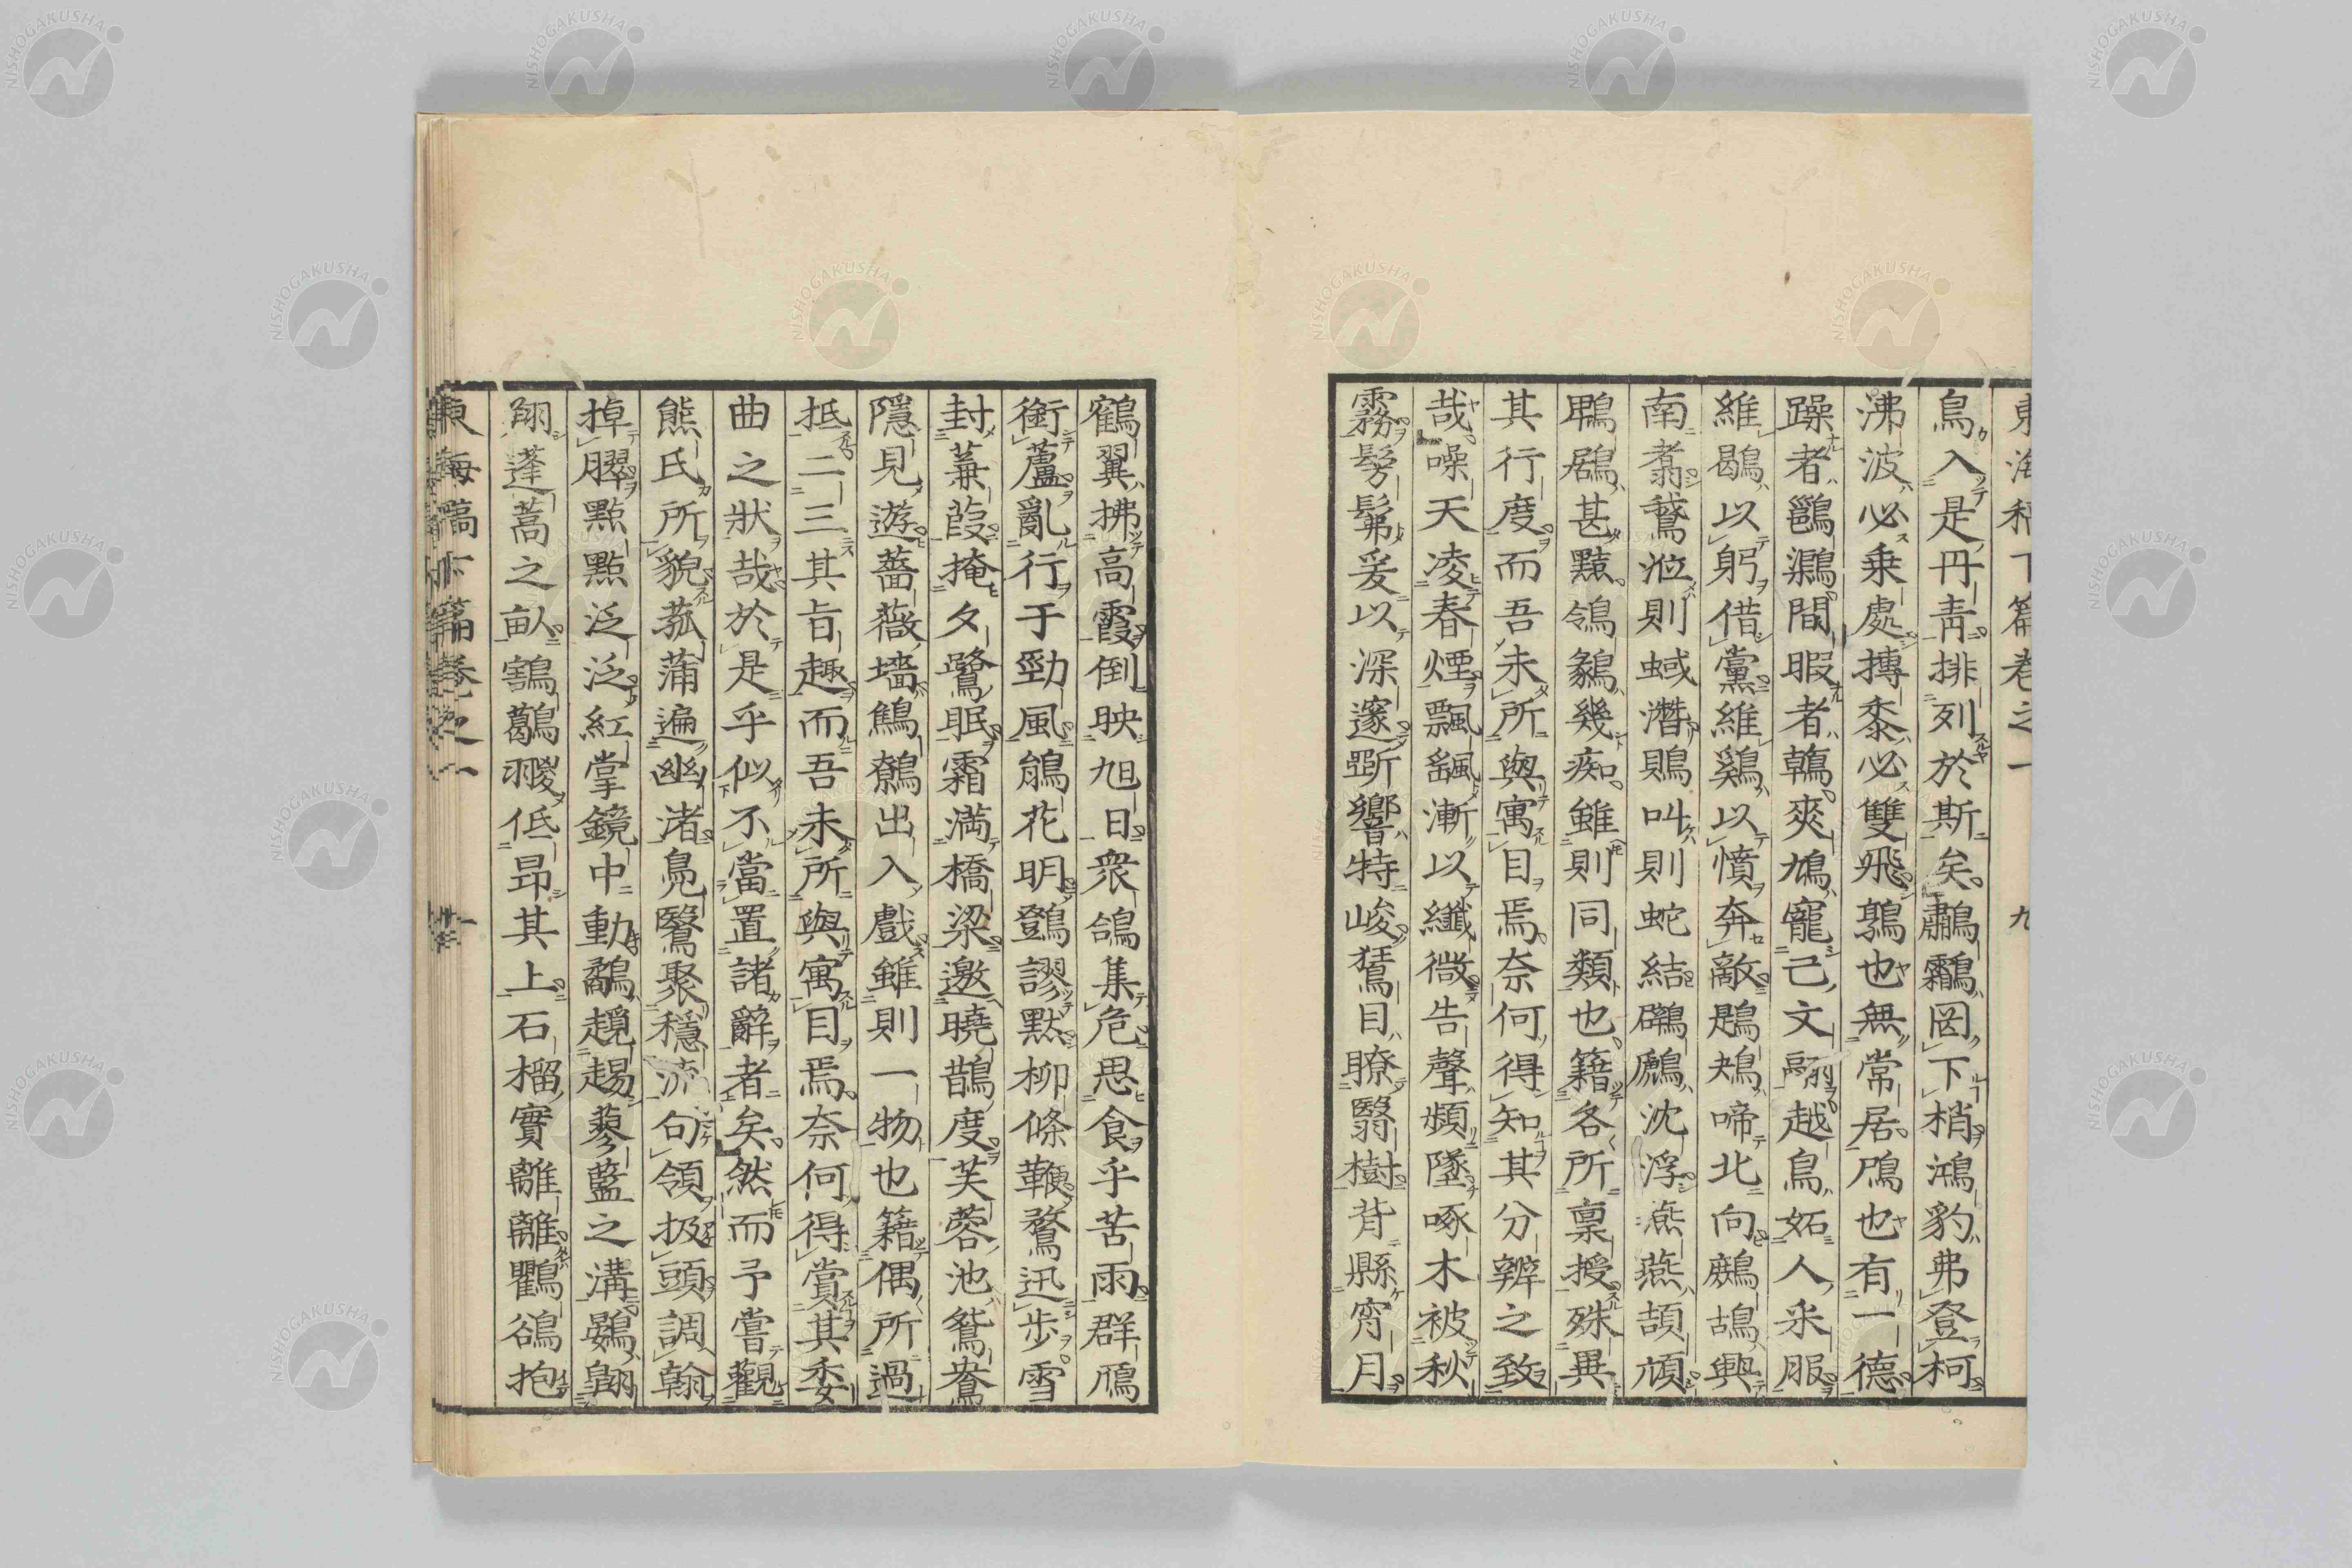 東海稿下篇卷之一 九
鳥入是丹靑排列於斯矣鷫鸘罔下梢鴻豹弗登柯
沸波必乗處摶黍必雙飛鶉也無常居鴈也有一德
躁者鶅鸂閒暇者鶾爽鳩寵己文翮越鳥妬人釆服
維鶡以躬借黨維鷄以憤奔敵鶗鴂啼北向鷓鴣興
南翥鵞涖則蜮潛鵙叫則蛇結鸊鷉沈浮燕燕頡頏
鵙鶋甚黠鴒鷚幾痴雖則同類也籍各所稟授殊異
其行度而吾未所與寓目焉奈何得知其分辨之致
哉噪天凌春煙飄颻漸以纖微告聲頻墜啄木被秋
霧髣髴爰以深邃斲響特峻鵟目瞭翳樹背縣宵月
鶴翼拂高霞倒映旭日衆鴿集危思食乎苦雨群鴈
銜蘆亂行于勁風鵃花明鵽謬默柳條鞭鶩迅步雪
封蒹葭掩夕鷺眠霜満橋梁邀曉鵲度芙蓉池鴛鴦
隱見遊薔薇墻鷦鷯出入戲雖則一物也籍偶所過
抵二三其旨趣而吾未所與寓目焉奈何得賞其委
曲之狀哉於是乎似不當置諸辭者矣然而予嘗觀
熊氏所貌菰蒲遍幽渚鳧鷖聚穩流句領扱頭調翰
掉臎點點泛泛紅掌鏡中動鸀趧趧蓼藍之溝鷃翺
翔蓬蒿之畝鶷鶡翪低昂其上石榴實離離鸜鵒抱
東海稿下篇卷之一